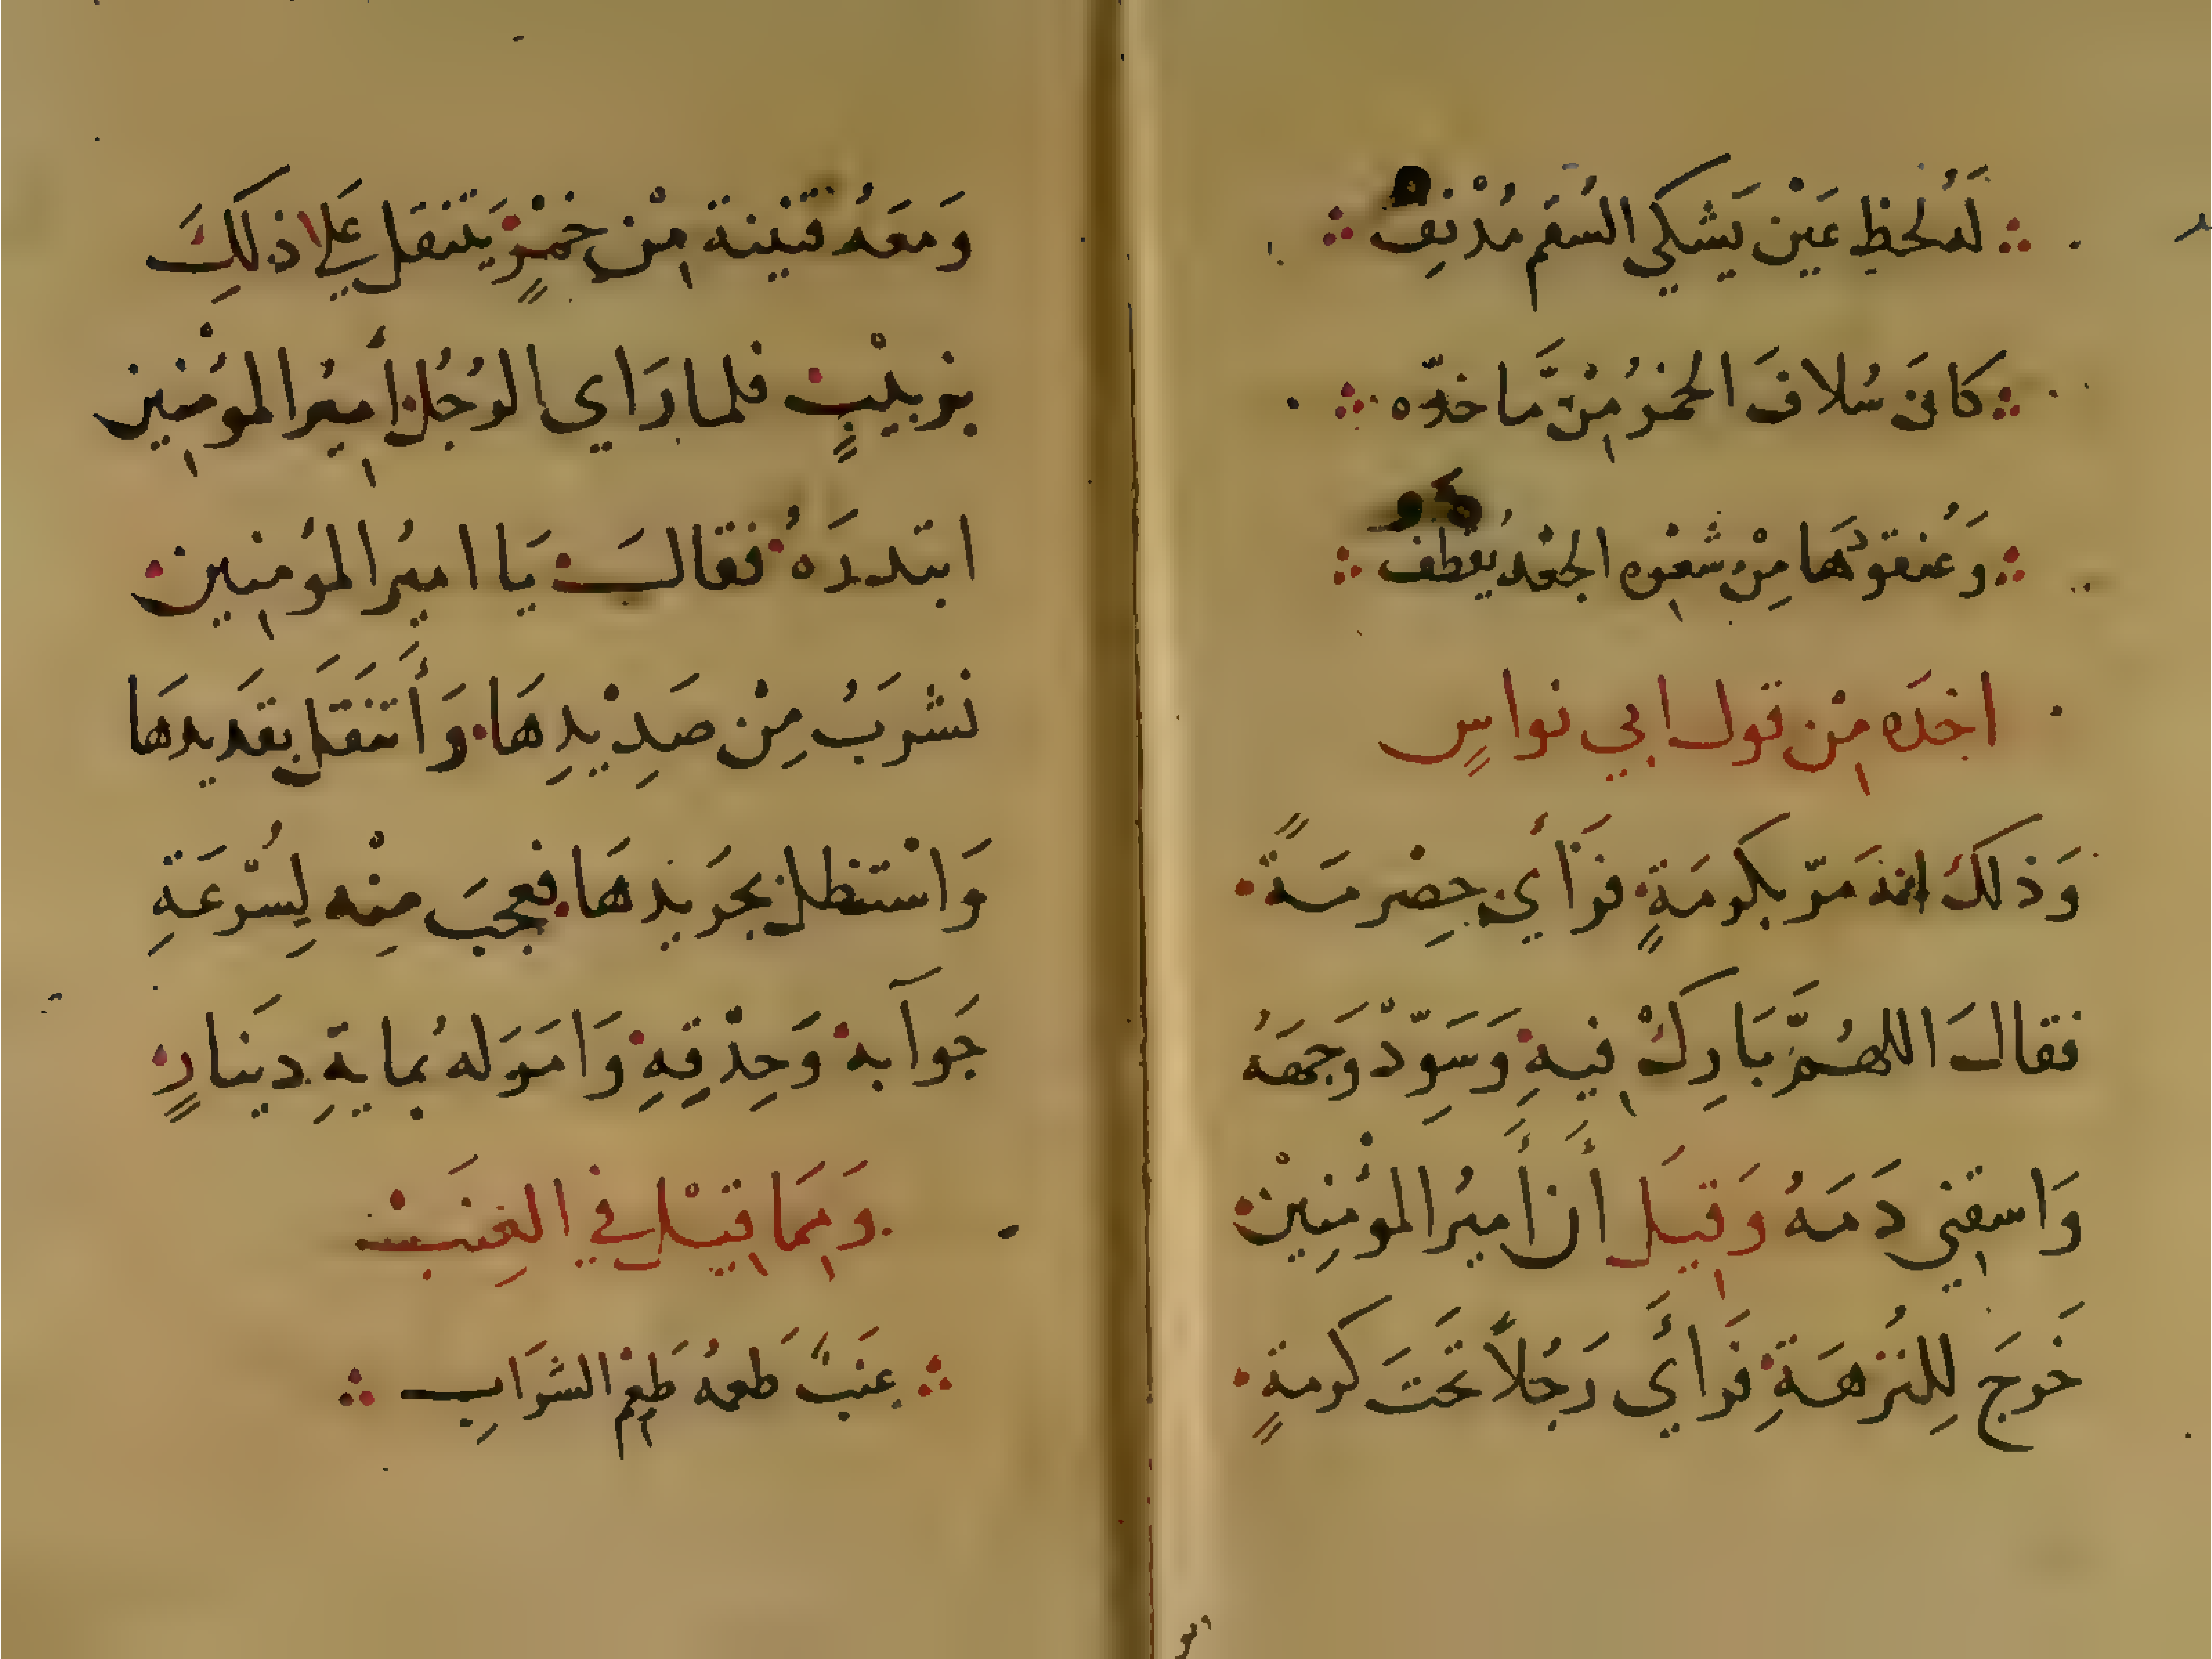 لَهُ لحظِ عَيْن يَشكي السُقم مُدْنِفْ
كانَ سُلافَ الخمرُ مِنْ مَّا خدّه
وَعُنقوُدُهَا مِنْ شعْرِه الجعْد يُقطفُ
اخدَه مِنْ قول ابي نواسٍ
وَذلكَ انهَ مَرّ بكرمَةٍ فرَأي حِصْرمَةً
فقالَ اللهُمَّ بَارِكْ فِيهِ وَسَوِّدْ وَجهَهُ
وَاسقِنِي دَمَهُ وَقِيَل أَن أَميرُ المؤمِنِينْ
خَرجَ لِلنُزهَةِ فَرأَي رَجُلاً تَحَتَ كرمةٍ
وَمعَهُ قنينة مِنْ خمْرٍ يَتنقل عَلي ذلكِ
بزبيْبٍ فلما رَاي الرُجُل أَمِيرُ المؤْمِنِين
ابتدرَهُ فقالَ يَا اميُر المؤُمنِين
نشرَبُ مِنْ صَدِيْدِهَا وَأَتنَقَل بقَديدهَا
وَاسْتظل بجَريدهَا فعجبَ مِنْه لِسُرْعَةِ
جَوآبه وَحِدْقِهِ وَامَرَلهُ بمايَةِ دينَارٍ
وَمِمَا قِيْل في العِنَبْ
عِنَبٌ طَعمهُ طَعِمْ الشرَابِ